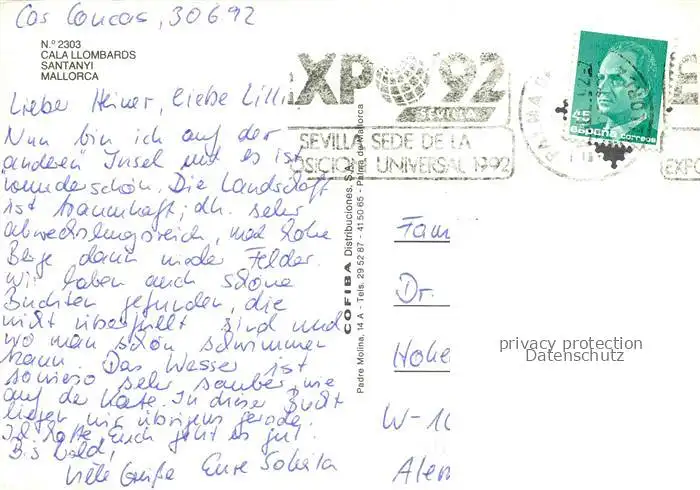 Cas Concas, 30.6.92
N.º 2303
CALA LLOMBARDS
SANTANYI
MALLORCA
Lieber Heiner, liebe Lilli
Nun bin ich auf der
anderen Insel und es ist
wunderschön. Die Landschaft
ist traumhaft; dh. sehr
abwechslungsreich, mal hohe
Berge dann wieder Felder.
Wir haben auch schöne
Buchten gefunden, die
nicht überfüllt sind und
wo man schön schwimmen
kann. Das Wasser ist
sowieso sehr sauber, wie
auf der Karte. In dieser Bucht
liegen wir übrigens gerade.
Ich hoffe Euch geht es gut.
Bis bald,
Viele Grüße Eure
COFIBA Distribuciones, S.A.
Padre Molina, 14 A - Tels. 29 52 87 - 41 50 65 - Palma de Mallorca
EXPO '92
SEVILLA
SEVILLA SEDE DE LA
OSICION UNIVERSAL 1992
PALMA D
45
ESPAÑA correos
E
EXPO
Fam
Dr.
Hohe
W-10
Alem
privacy protection
Datenschutz